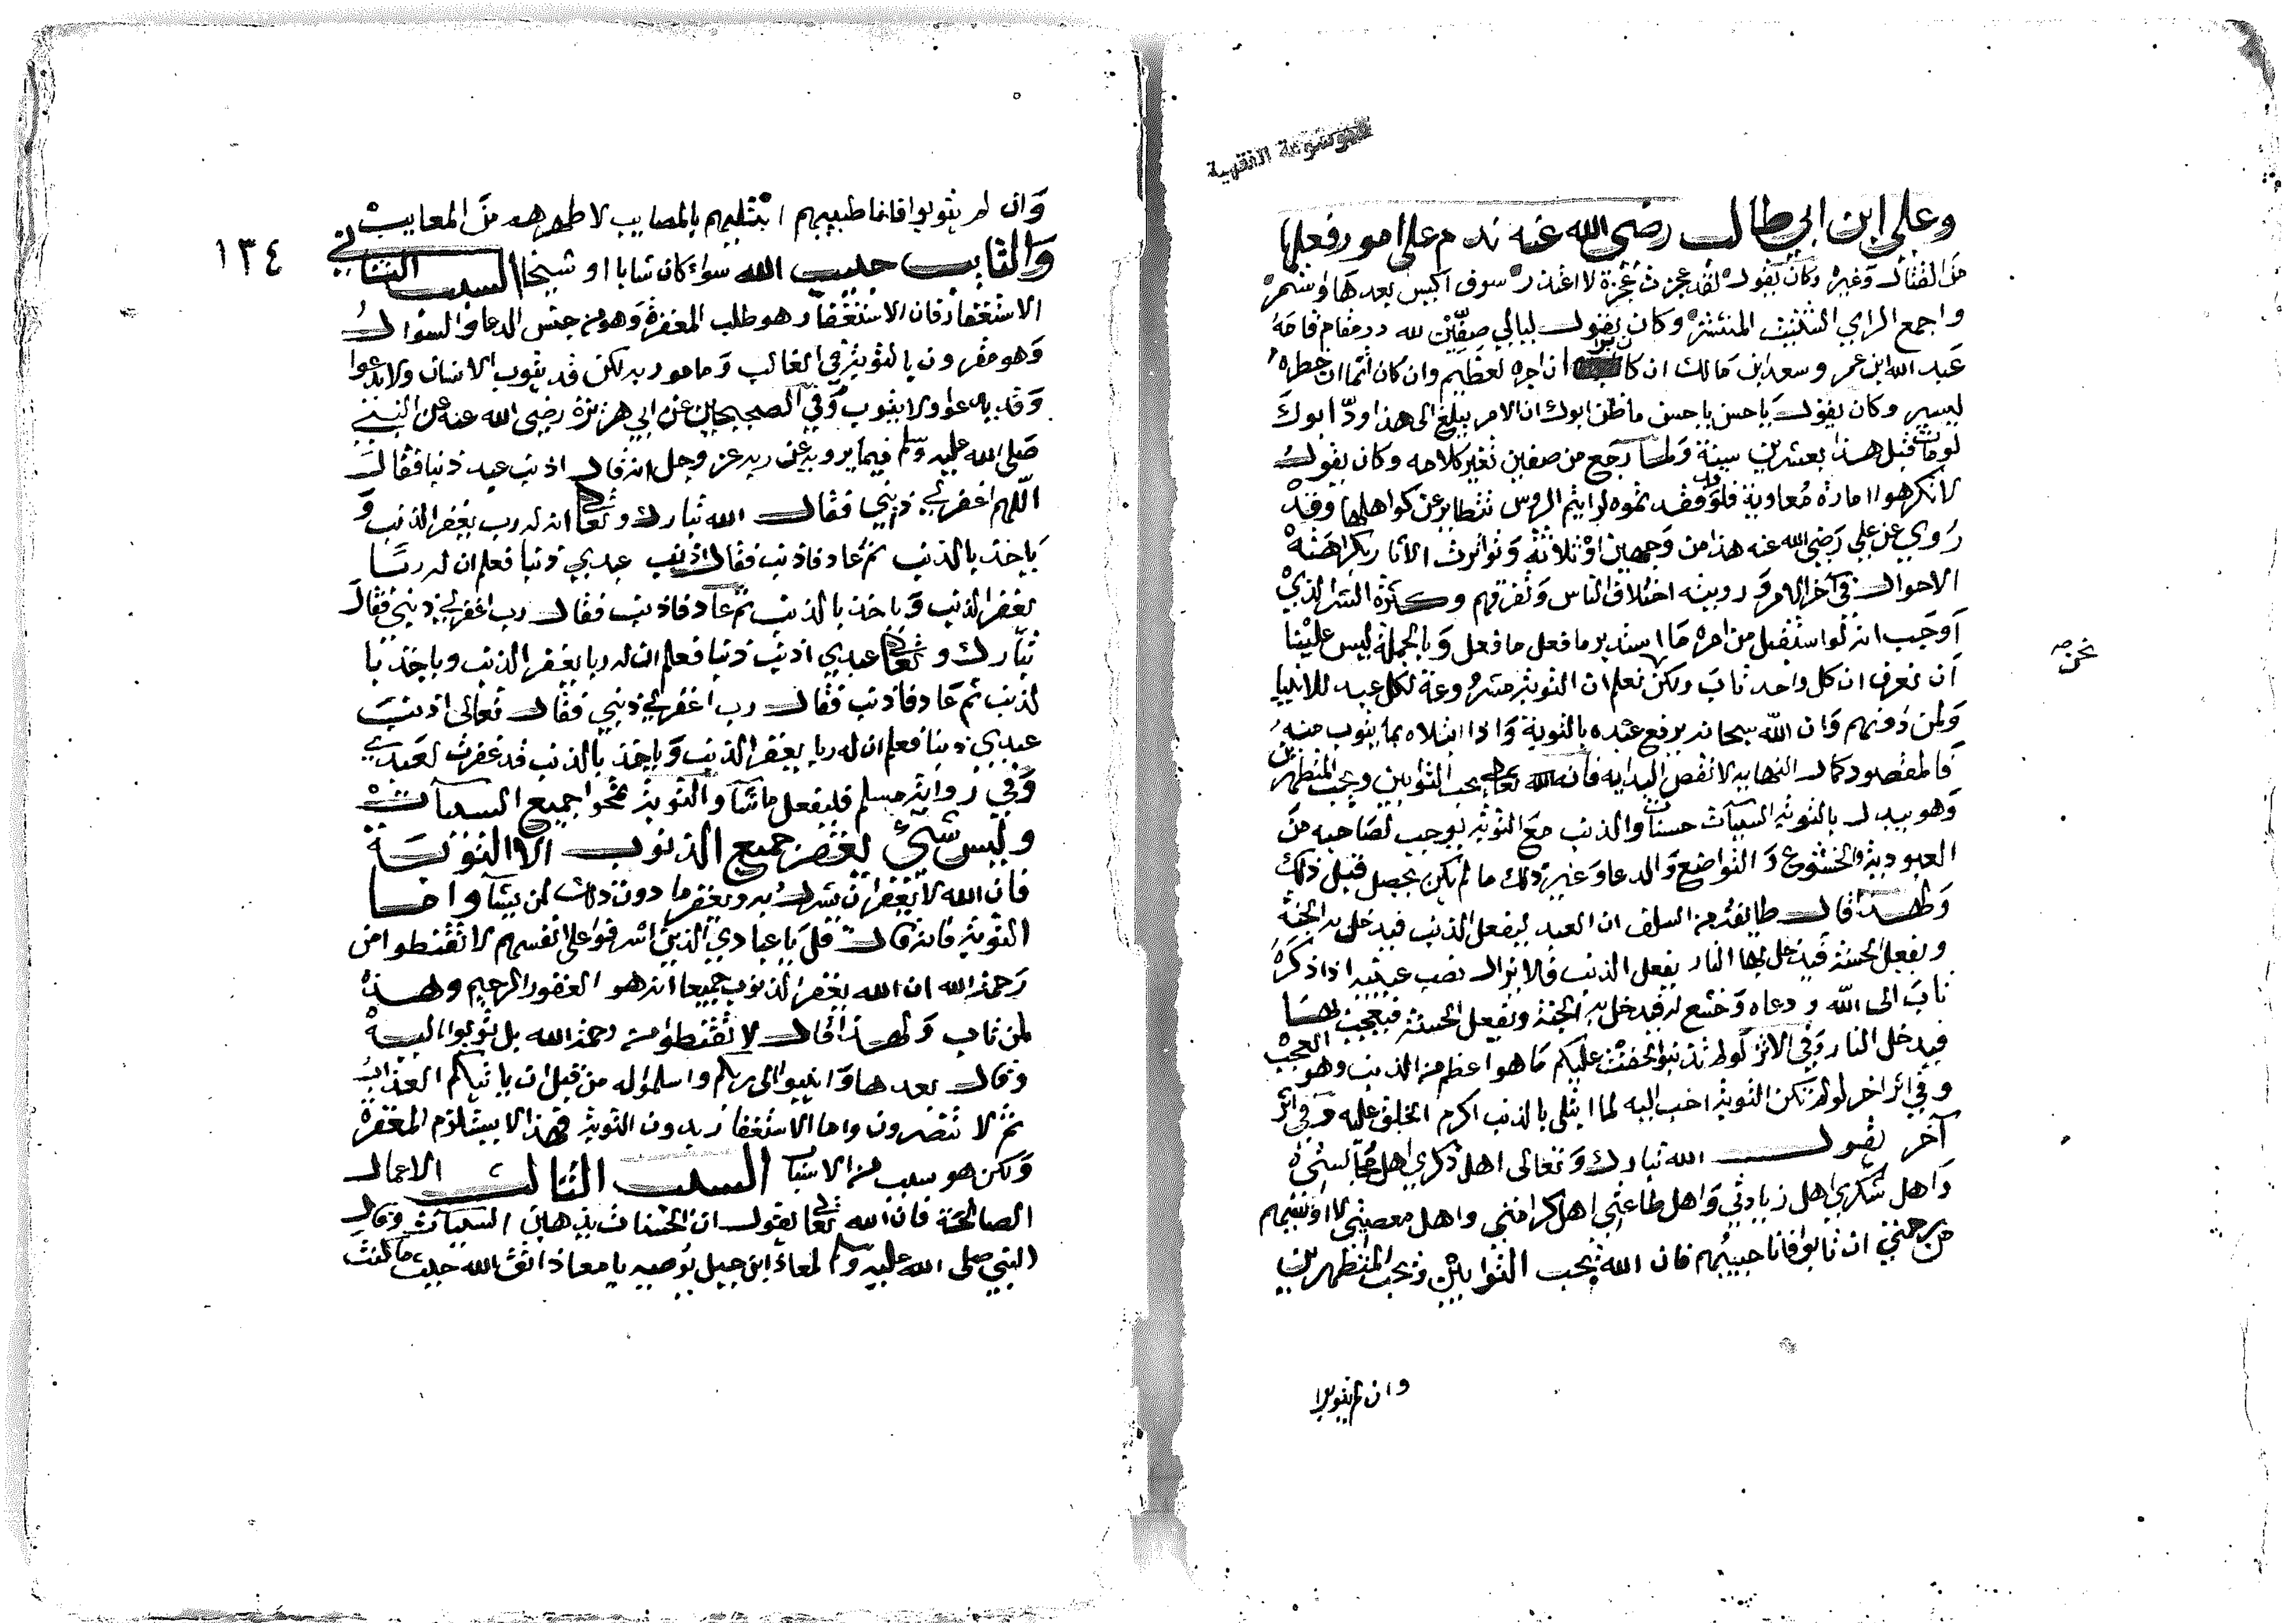 الموسوعة الفقهية
وعلي ابن ابي طالب رضي الله عنه ندم على امور فعلها
من القتال وغيره وكان يقول لقد عجزت عجزة لا اعتذر سوف اكيس بعدها واستمر
واجمع الراي الشتيت المنتشر وكان يقول ليالي صفين لله در مقام قامه
عبد الله ابن عمر وسعد ابن مالك ان كان برا ان اجره لعظيم وان كان اثما ان خطره
ليسير وكان يقول يا حسن يا حسن ما ظن ابوك ان الامر يبلغ الى هذا ود ابوك
لو مات قبل هذا بعشرين سنة ولما رجع من صفين تغير كلامه وكان يقول
لا تكرهوا امارة معاوية فلو قد فقد تموه لرايتم الروس تتطاير عن كواهلها وقد
روي عن علي رضي الله عنه هذا من وجهين او ثلاثة وتواترت الآثار بكراهته
الاحوال في آخر الامر وروبيته اختلاف الناس وتفرقهم وكثرة الشر الذي
اوجب انه لو استقبل من امره ما استدبر ما فعل ما فعل وبالجملة ليس علينا
ان نعرف ان كل واحد تاب ولكن نعلم ان التوبة مشروعة لكل عبد للانبيا
نحن صه
ولمن دونهم وان الله سبحانه يرفع عبده بالتوبة واذا ابتلاه بما يتوب منه
فالمقصود كمال النهايه لا نقص البدايه فانه الله تعالى يحب التوابين ويحب المتطهرين
وهو يبدل بالتوبة السيآت حسنات والذنب مع التوبة يوجب لصاحبه من
العبودية والخشوع والتواضع والدعا وغير ذلك ما لم يكن يحصل قبل ذلك
ولهذا قال طايفة من السلف ان العبد ليفعل الذنب فيدخل به الجنة
ويفعل الحسنة فيدخل بها النار يفعل الذنب فلا يزال نصب عينيه اذا ذكره
تاب الى الله ودعاه وخشع له فيدخل به الجنة ويفعل الحسنة فيعجب بها
فيدخل النار وفي الاثر لو لم تذنبوا لخفت عليكم ما هو اعظم من الذنب وهو العجب
وفي اثر اخر لو لم تكن التوبة احب اليه لما ابتلى بالذنب اكرم الخلق عليه وفي اثر
آخر يقول الله تبارك وتعالى اهل ذكري اهل مجالستي
واهل شكري اهل زيادتي واهل طاعتي اهل كرامتي واهل معصيتي لا اونسهم
من رحمتي ان تابوا فانا حبيبهم فان الله يحب التوابين ويحب المتطهرين
وان لم يتوبوا
وان لم يتوبوا فانا طبيبهم ابتليهم بالمصايب لاطهرهم من المعايب
١٣٤
والتايب حبيب الله سواء كان شابا او شيخا السبب الثاني
الاستغفار فان الاستغفار هو طلب المغفرة وهو من جنس الدعا والسؤال
وهو مقرون بالتوبة في الغالب ومامور به لكن قد يتوب الانسان ولا يدعوا
وقد يدعوا ولا يتوب وفي الصحيحين عن ابي هريرة رضي الله عنه عن النبي
صلى الله عليه وسلم فيما يرويه عن ربه عز وجل انه قال اذنب عبد ذنبا فقال
اللهم اغفر لي ذنبي فقال الله تبارك وتعالى ان له رب يغفر الذنب و
ياخذ بالذنب ثم عاد فاذنب فقال اذنب عبدي ذنبا فعلم ان له ربا
يغفر الذنب وياخذ بالذنب ثم عاد فاذنب فقال رب اغفر لي ذنبي فقال
تبارك وتعالى عبدي اذنب ذنبا فعلم ان له ربا يغفر الذنب وياخذ با
لذنب ثم عاد فاذنب فقال رب اغفر لي ذنبي فقال تعالى اذنب
عبدي ذنبا فعلم ان له ربا يغفر الذنب وياخذ بالذنب قد غفرت لعبدي
وفي رواية مسلم فليفعل ما شآ والتوبة تمحوا جميع السيآت
وليس شيء يغفر جميع الذنوب الا التوبة
فان الله لا يغفر ان يشرك به ويغفر ما دون ذلك لمن يشآ واما
التوبة فانه قال قل يا عبادي الذين اسرفوا على انفسهم لا تقنطوا من
رحمة الله ان الله يغفر الذنوب جميعا انه هو الغفور الرحيم وهذه
لمن تاب ولهذا قال لا تقنطوا من رحمة الله بل توبوا اليه
وقال بعدها وانيبوا الى ربكم واسلموا له من قبل ان ياتيكم العذاب
ثم لا تنصرون واما الاستغفار بدون التوبة فهذا لا يستلزم المغفرة
ولكن هو سبب من الاسباب السبب الثالث الاعمال
الصالحة فان الله تعالى يقول ان الحسنات يذهبن السيآت وقال
النبي صلى الله عليه وسلم لمعاذ ابن جبل يوصيه يا معاذ اتق الله حيث ما كنت